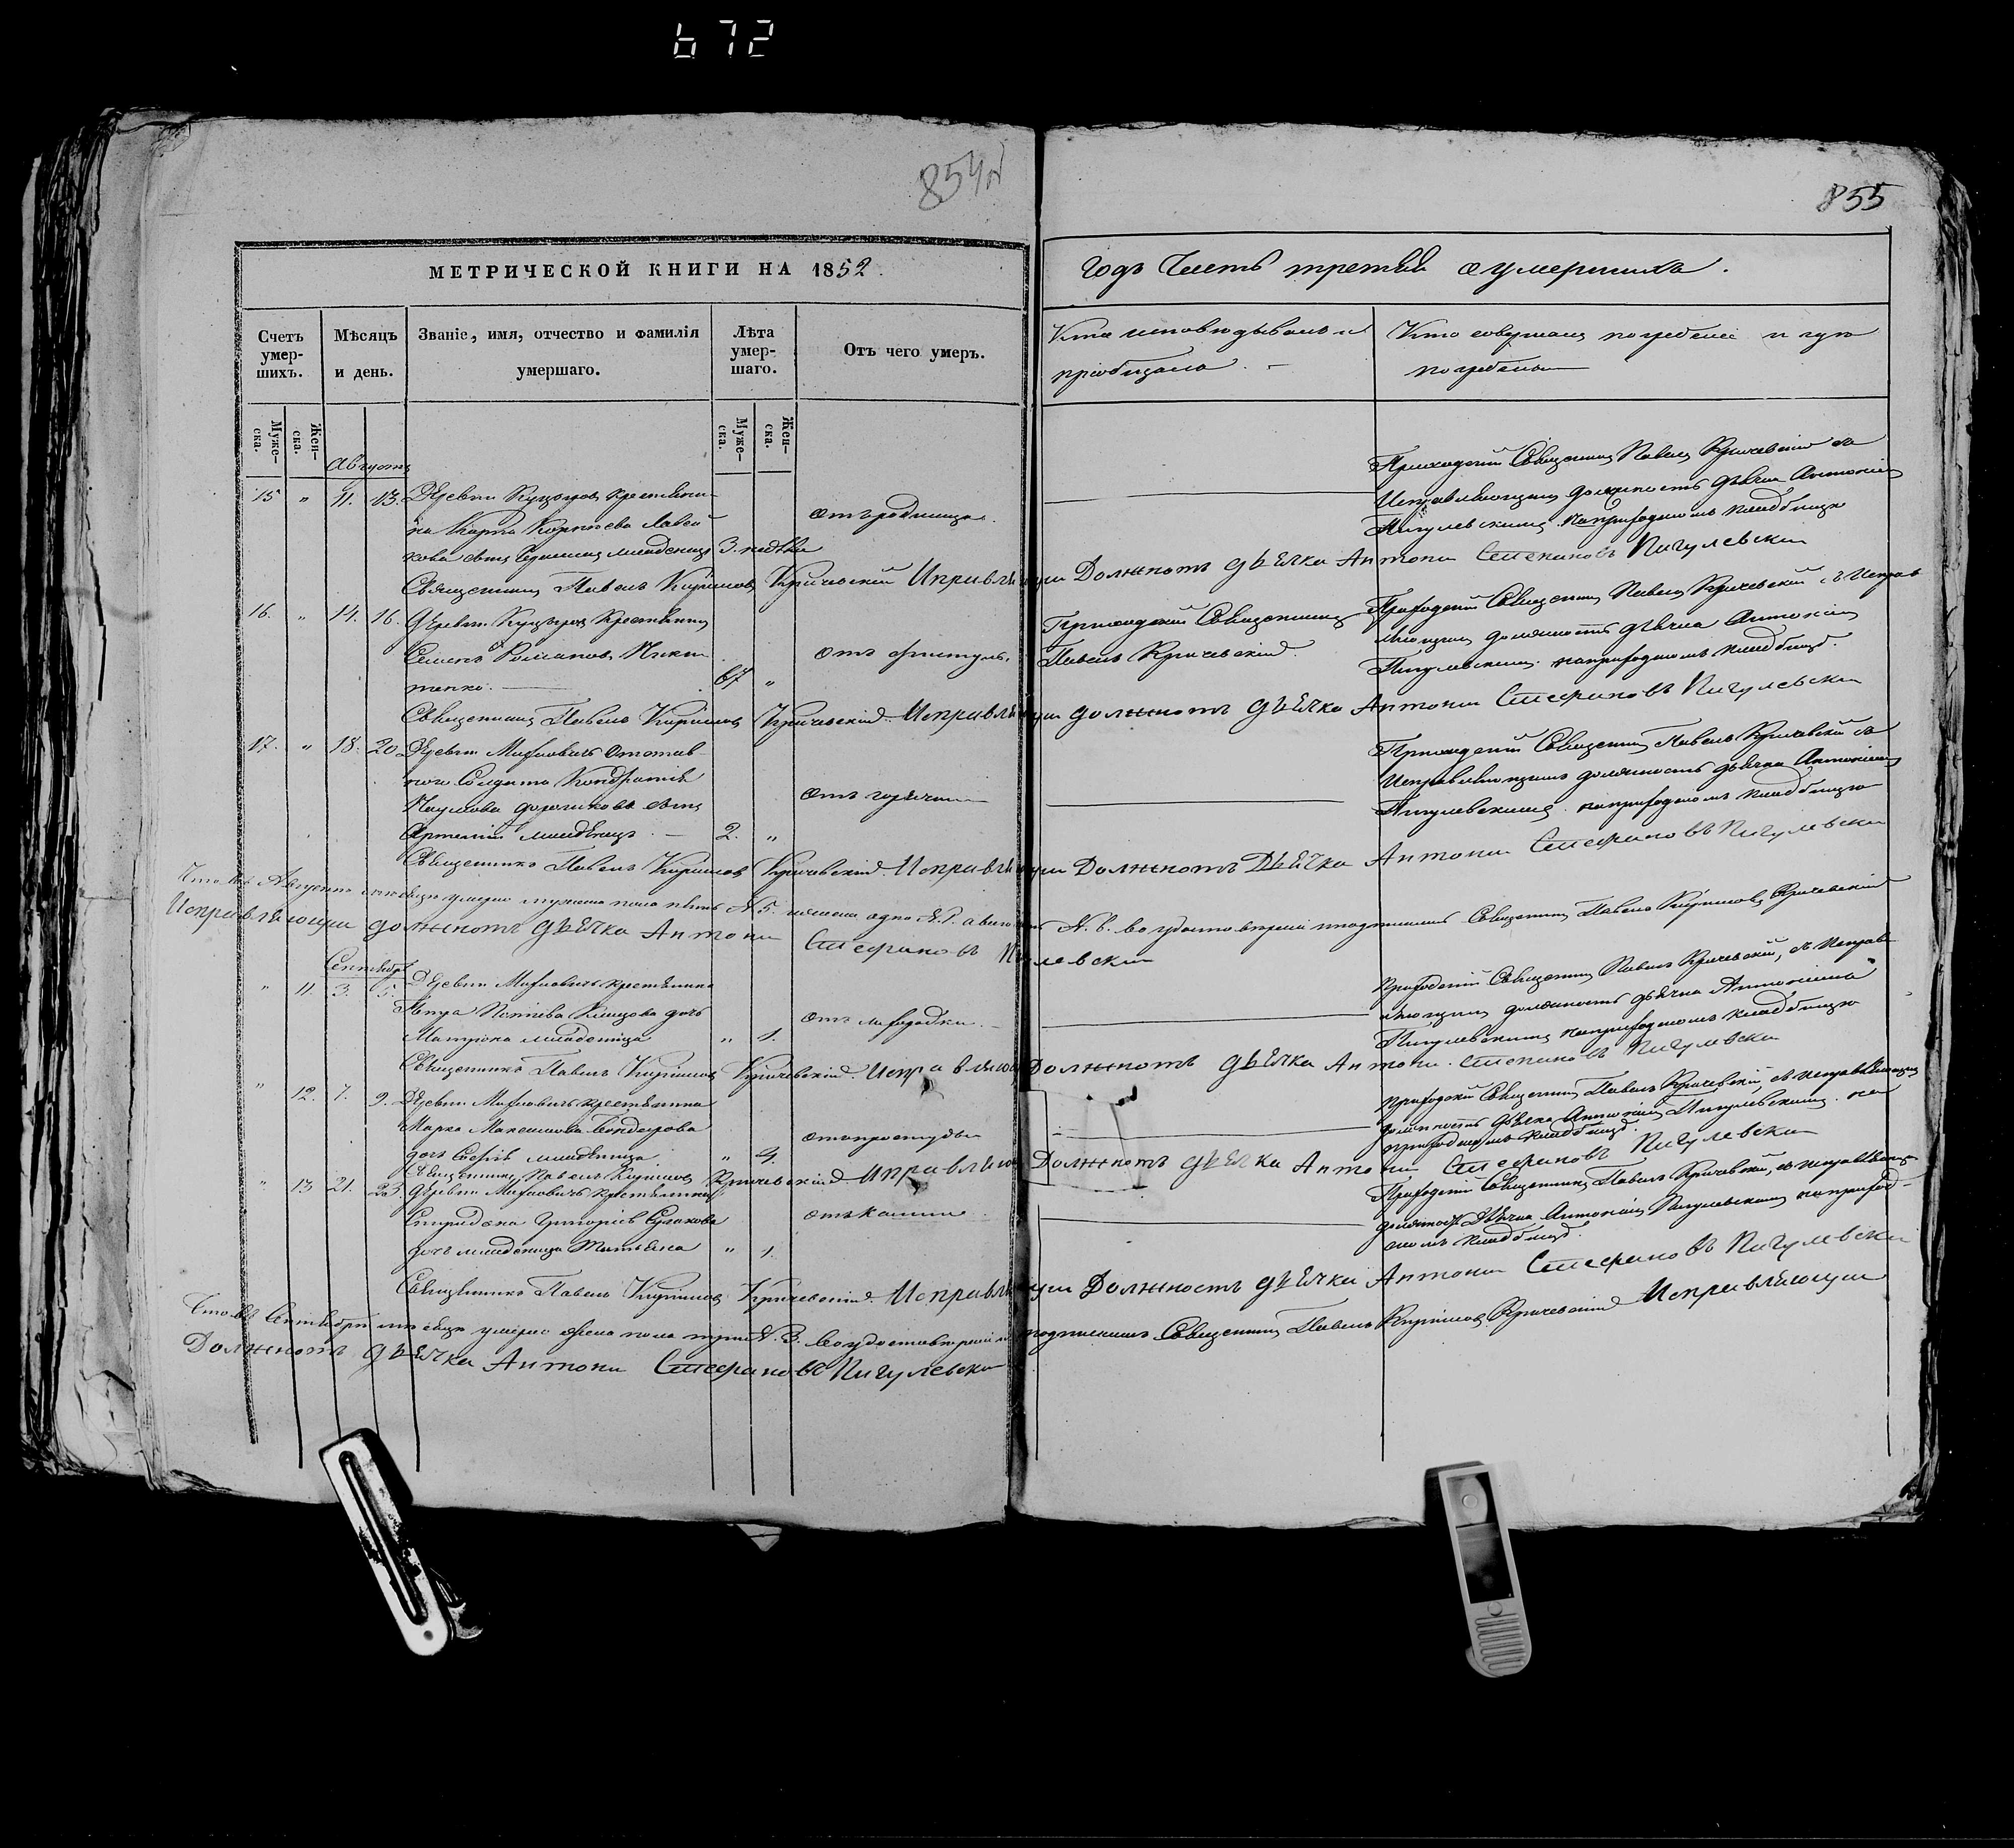 672
854
855
МЕТРИЧЕСКОЙ КНИГИ НА 1852.
годъ Часть третья о умершихъ.
Счетъ умер-шихъ.
Мѣсяцъ и день.
Званіе, имя, отчество и фамилія умершаго.
Лѣта умер-шаго.
Отъ чего умеръ.
Кто исповѣдывалъ и
пріобщалъ.
Кто совершалъ погребеніе и гдѣ
погребены
Муже-ска.
Жен-ска.
Муже-ска.
Жен-ска.
Августъ
15 " 11. 13. Деревни крестьяни-
на Карпа
сынъ младенецъ 3. недѣли
отъ родимца.
Приходскій Священникъ Павелъ Кричевскій съ
Исправляющимъ должность дьячка Антоніемъ
Пигулевскимъ на приходскомъ кладбищѣ
Священникъ Павелъ Кириловъ Кричевскій Исправляющи Должность дьячка Антони Стефановъ Пигулевски
16. " 14. 16. Деревни крестьянинъ
Семенъ Романовъ Ники-
тенко. 67 "
отъ
Приходскій Священникъ
Павелъ Кричевскій.
Приходскій Священникъ Павелъ Кричевскій съ Исправ
ляющимъ должность дьячка Антоніемъ
Пигулевскимъ на приходскомъ кладбищѣ.
Священникъ Павелъ Кириловъ Кричевскій. Исправляющи должность дьячка Антони Стефановъ Пигулевски
17. " 18. 20. Деревни Отстав
ного Солдата Кондратія
Наумова сынъ
Артемій младенецъ. 2. "
отъ горячки
Приходскій Священникъ Павелъ Кричевскій съ
Исправляющимъ должность дьячка Антоніемъ
Пигулевскимъ на приходскомъ кладбищѣ
Священникъ Павелъ Кириловъ Кричевскій Исправляющи Должность Дьячка Антони Стефановъ Пигулевски
Что въ Августѣ мѣсяцѣ умерло мужеска пола пять №5. женска одна №1. а всего №6. во удостовереніи подписались Священникъ Павелъ Кириловъ Кричевскій
Исправляющи должность дьячка Антони Стефановъ Пигулевски
Сентябрь
" 11. 3. 5. Деревни крестьянина
Петра дочь
Матрона младеница " 1.
отъ лихорадки.
Приходскій Священникъ Павелъ Кричевскій, съ Исправ
ляющимъ должность дьячка Антоніемъ
Пигулевскимъ на приходскомъ кладбищѣ
Священникъ Павелъ Кириловъ Кричевскій. Исправляющи Должность дьячка Антони. Стефановъ Пигулевски
" 12. 7. 9. Деревни крестьянина
Марка Максимова Бондарова
дочь Софія младеница " 4.
отъ простуды
Приходскій Священникъ Павелъ Кричевскій, съ исправляющимъ
должность дьячка Антоніемъ Пигулевскимъ. на
приходскомъ кладбищѣ.
Священникъ Павелъ Кириловъ Кричевскій Исправляющи Должность дьячка Антони Стефановъ Пигулевски
" 13 21. 23 Деревни крестьянина
Спиридона Григоріева
дочь младеница Татьяна " 1.
отъ кашли
Приходскій Священникъ Павелъ Кричевскій, съ исправляющимъ
должность Дьячка Антоніемъ Пигулевскимъ на приход-
скомъ кладбищѣ.
Священникъ Павелъ Кириловъ Кричевскій. Исправляющи Должность дьячка Антони Стефановъ Пигулевски
Что въ Сентябрѣ мѣсяцѣ умерло женска пола три №3. во удостовереніи подписались Священникъ Павелъ Кириловъ Кричевскій Исправляющи
Должность дьячка Антони Стефановъ Пигулевски